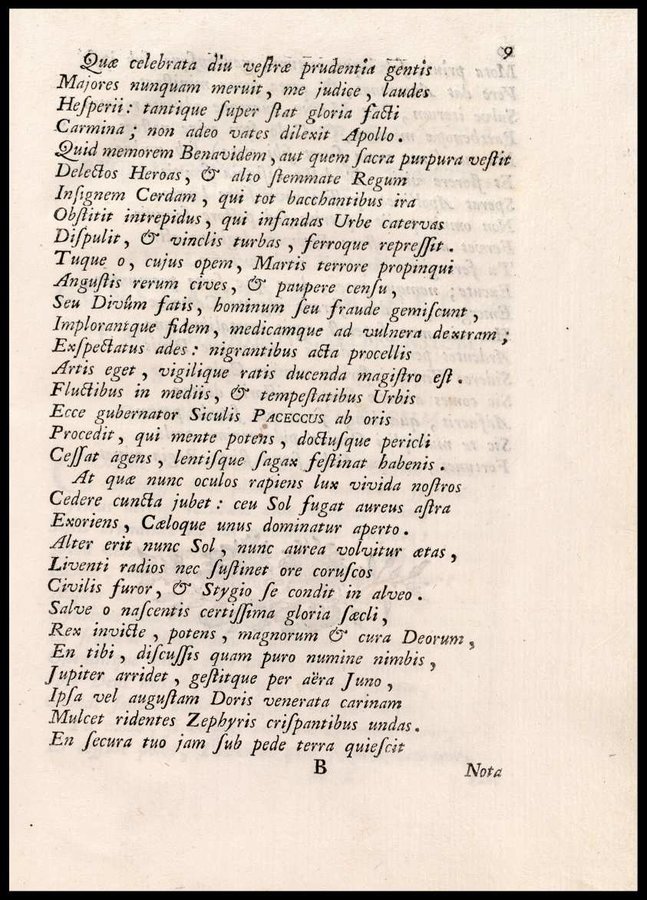 9
Quæ celebrata diu veſtræ prudentia gentis
Majores nunquam meruit, me judice, laudes
Heſperii: tantique ſuper ſtat gloria facti
Carmina; non adeo vates dilexit Apollo.
Quid memorem Benavidem, aut quem ſacra purpura veſtit
Delectos Heroas, & alto ſtemmate Regum
Inſignem Cerdam, qui tot bacchantibus ira
Obſtitit intrepidus, qui infandas Urbe catervas
Diſpulit, & vinclis turbas, ferroque repreſſit.
Tuque o, cujus opem, Martis terrore propinqui
Anguſtis rerum cives, & paupere cenſu,
Seu Divûm fatis, hominum ſeu fraude gemiſcunt,
Implorantque fidem, medicamque ad vulnera dextram;
Exſpectatus ades: nigrantibus acta procellis
Artis eget, vigilique ratis ducenda magiſtro eſt.
Fluctibus in mediis, & tempeſtatibus Urbis
Ecce gubernator Siculis PACECCUS ab oris
Procedit, qui mente potens, doctuſque pericli
Ceſſat agens, lentiſque ſagax feſtinat habenis.
At quæ nunc oculos rapiens lux vivida noſtros
Cedere cuncta jubet: ceu Sol fugat aureus aſtra
Exoriens, Cæloque unus dominatur aperto.
Alter erit nunc Sol, nunc aurea volvitur ætas,
Liventi radios nec ſuſtinet ore coruſcos
Civilis furor, & Stygio ſe condit in alveo.
Salve o naſcentis certiſſima gloria ſæcli,
Rex invicte, potens, magnorum & cura Deorum,
En tibi, diſcuſſis quam puro numine nimbis,
Jupiter arridet, geſtitque per aëra Juno,
Ipſa vel auguſtam Doris venerata carinam
Mulcet ridentes Zephyris criſpantibus undas.
En ſecura tuo jam ſub pede terra quieſcit
B
Nota